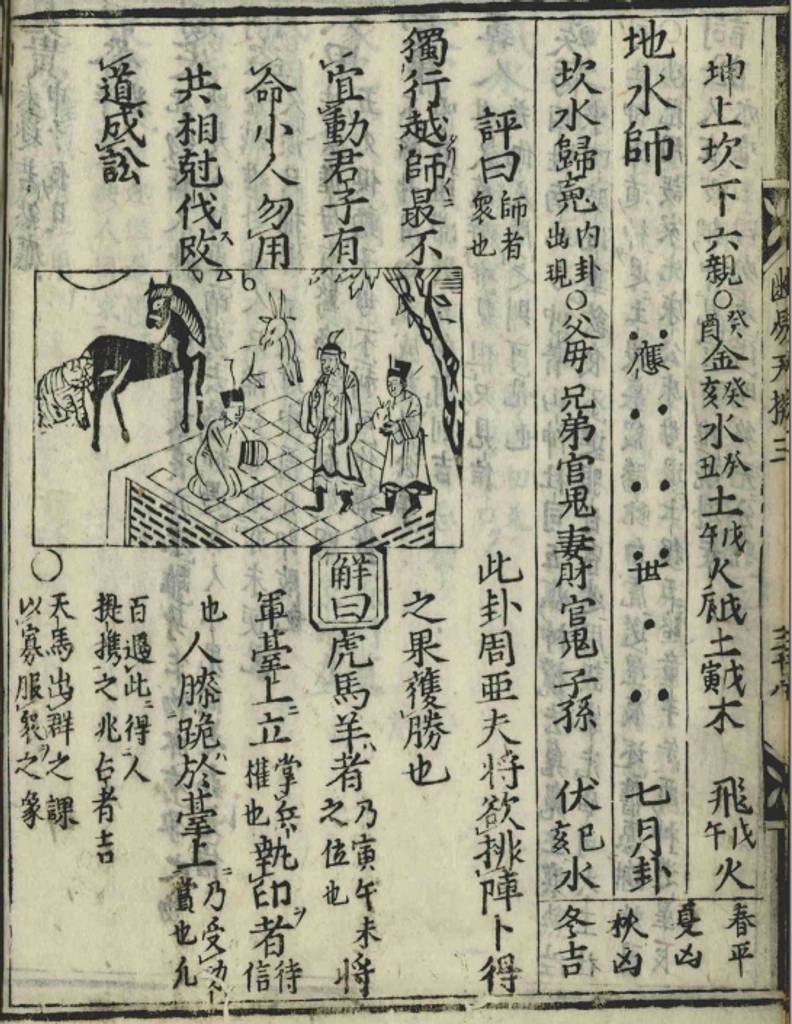 坤上坎下六親○癸酉金癸亥水癸丑土戊午火戊辰土戊寅木　飛戊午火
春平
夏凶
秋凶
冬吉
地水師　應　世　七月卦
坎水歸䰟內卦出現○父母兄弟官鬼妻財官鬼子孫　伏己亥水
評曰師者衆也
獨行越師最不
宜動君子有
命小人勿用
共相尅伐敗
道成訟
此卦周亞夫將欲排陣卜得
之果獲勝也
解曰虎馬羊者乃寅午未將之位也
軍臺上立掌兵權也執印者待信
也人膝跪於臺上乃受功賞也凡
百遇此得人
提携之兆占者吉
○天馬出群之課
以寡服衆之象